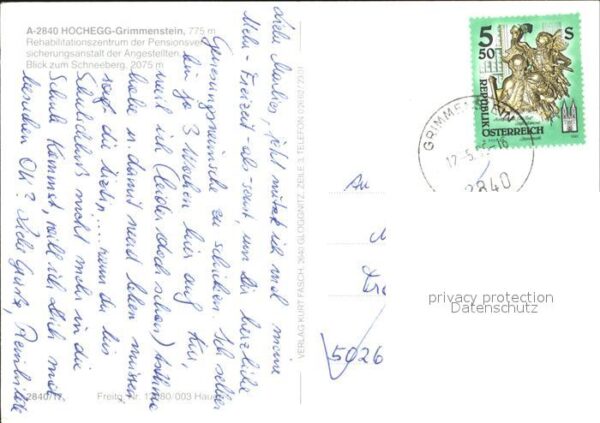 A-2840 HOCHEGG-Grimmenstein, 775 m
Rehabilitationszentrum der Pensionsver-
sicherungsanstalt der Angestellten.
Blick zum Schneeberg, 2075 m
jetzt ich mal meine
Mehr-Freizeit-als-sonst, um Dir herzliche
Genesungswünsche zu schicken. Ich selber
bin ja 3 Wochen hier auf Kur,
weil ich (leider doch schon) Asthma
habe u. damit werd leben müssen
sagt die Ärztin ... wenn Du bis
Schulschluss nicht mehr in die
Schule kommst, will ich Dich mal
besuchen OK? Liebe Grüße,
2840/17 Freytg. Nr.
VERLAG KURT FASCH, 2640 GLOGGNITZ, ZEILE 3, TELEFON
5 50 S
REPUBLIK
ÖSTERREICH
GRIMMENSTEIN
2840
An
5026
privacy protection
Datenschutz